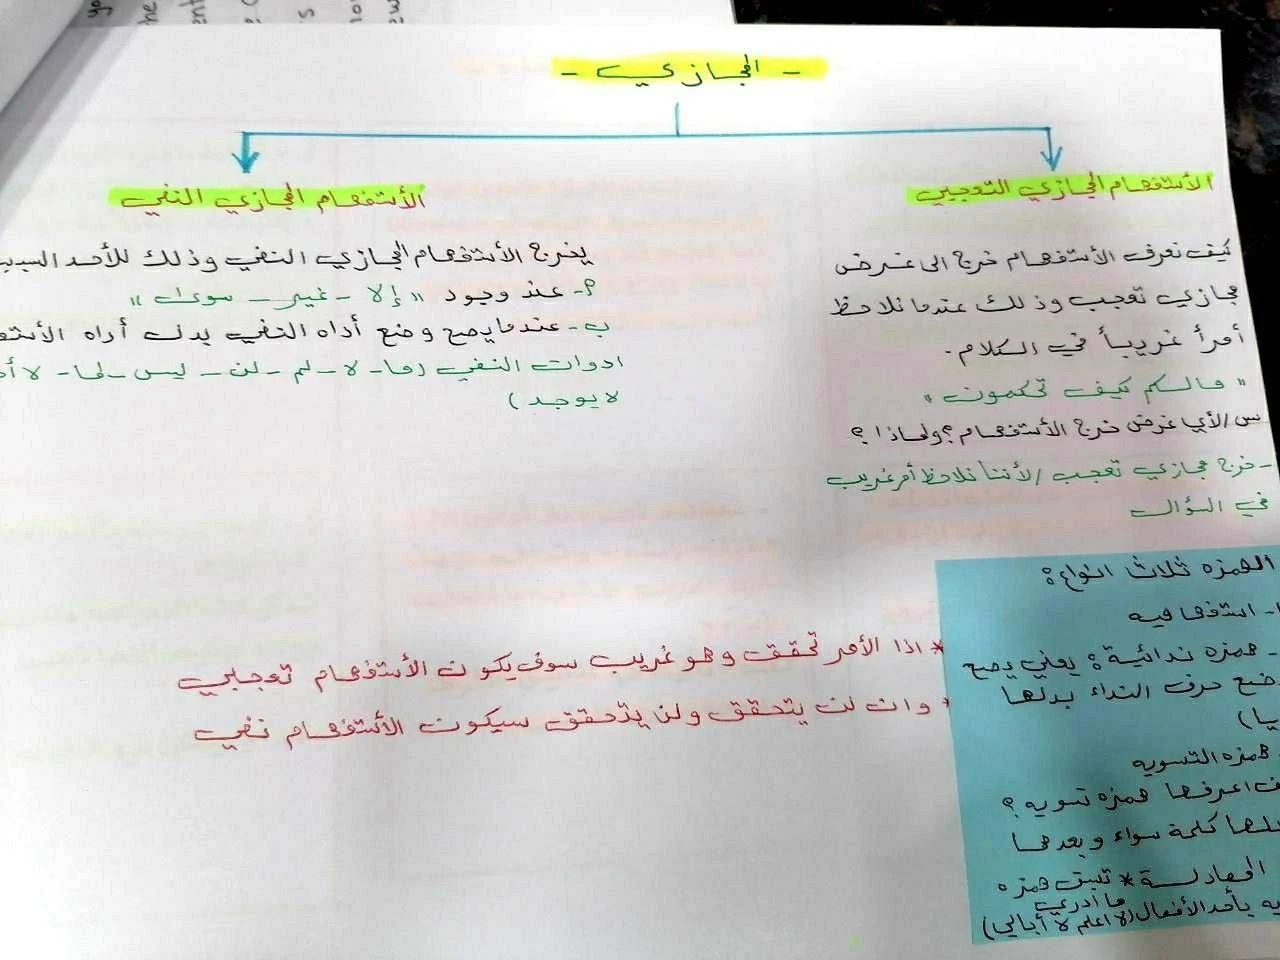 - المجازي -
الأستفهام المجازي التعجبي
كيف نعرف الأستفهام خرج الى غرض
مجازي تعجب وذلك عندما نلاحظ
أمرأ غريبأ في الكلام.
"مالكم كيف تحكمون"
س/لأي غرض خرج الأستفهام؟ ولماذا؟
- خرج مجازي تعجب / لأننا نلاحظ أمر غريب
في السؤال
الأستفهام المجازي النفي
يخرج الأستفهام المجازي النفي وذلك للأحد
أ- عند وجود "إلا - غير - سوى"
ب- عندما يصح وضع أداه النفي بدل أداه
ادوات النفي (ما - لا - لم - لن - ليس - لما - لا
لا يوجد)
* اذا الأمر تحقق وهو غريب سوف يكون الأستفهام تعجبي
* وان لن يتحقق ولن يتحقق سيكون الأستفهام نفي
الهمزه ثلاث انواع:
١- استفهاميه
- همزه ندائية: يعني يصح
وضع حرف النداء بدلها
يا)
- همزه التسويه
اعرفها همزه تسويه؟
كلمة سواء وبعدها
المعادلة * تسبق همزه
بأحد الأفعال (لا اعلم لا أبالي)
ما أدري